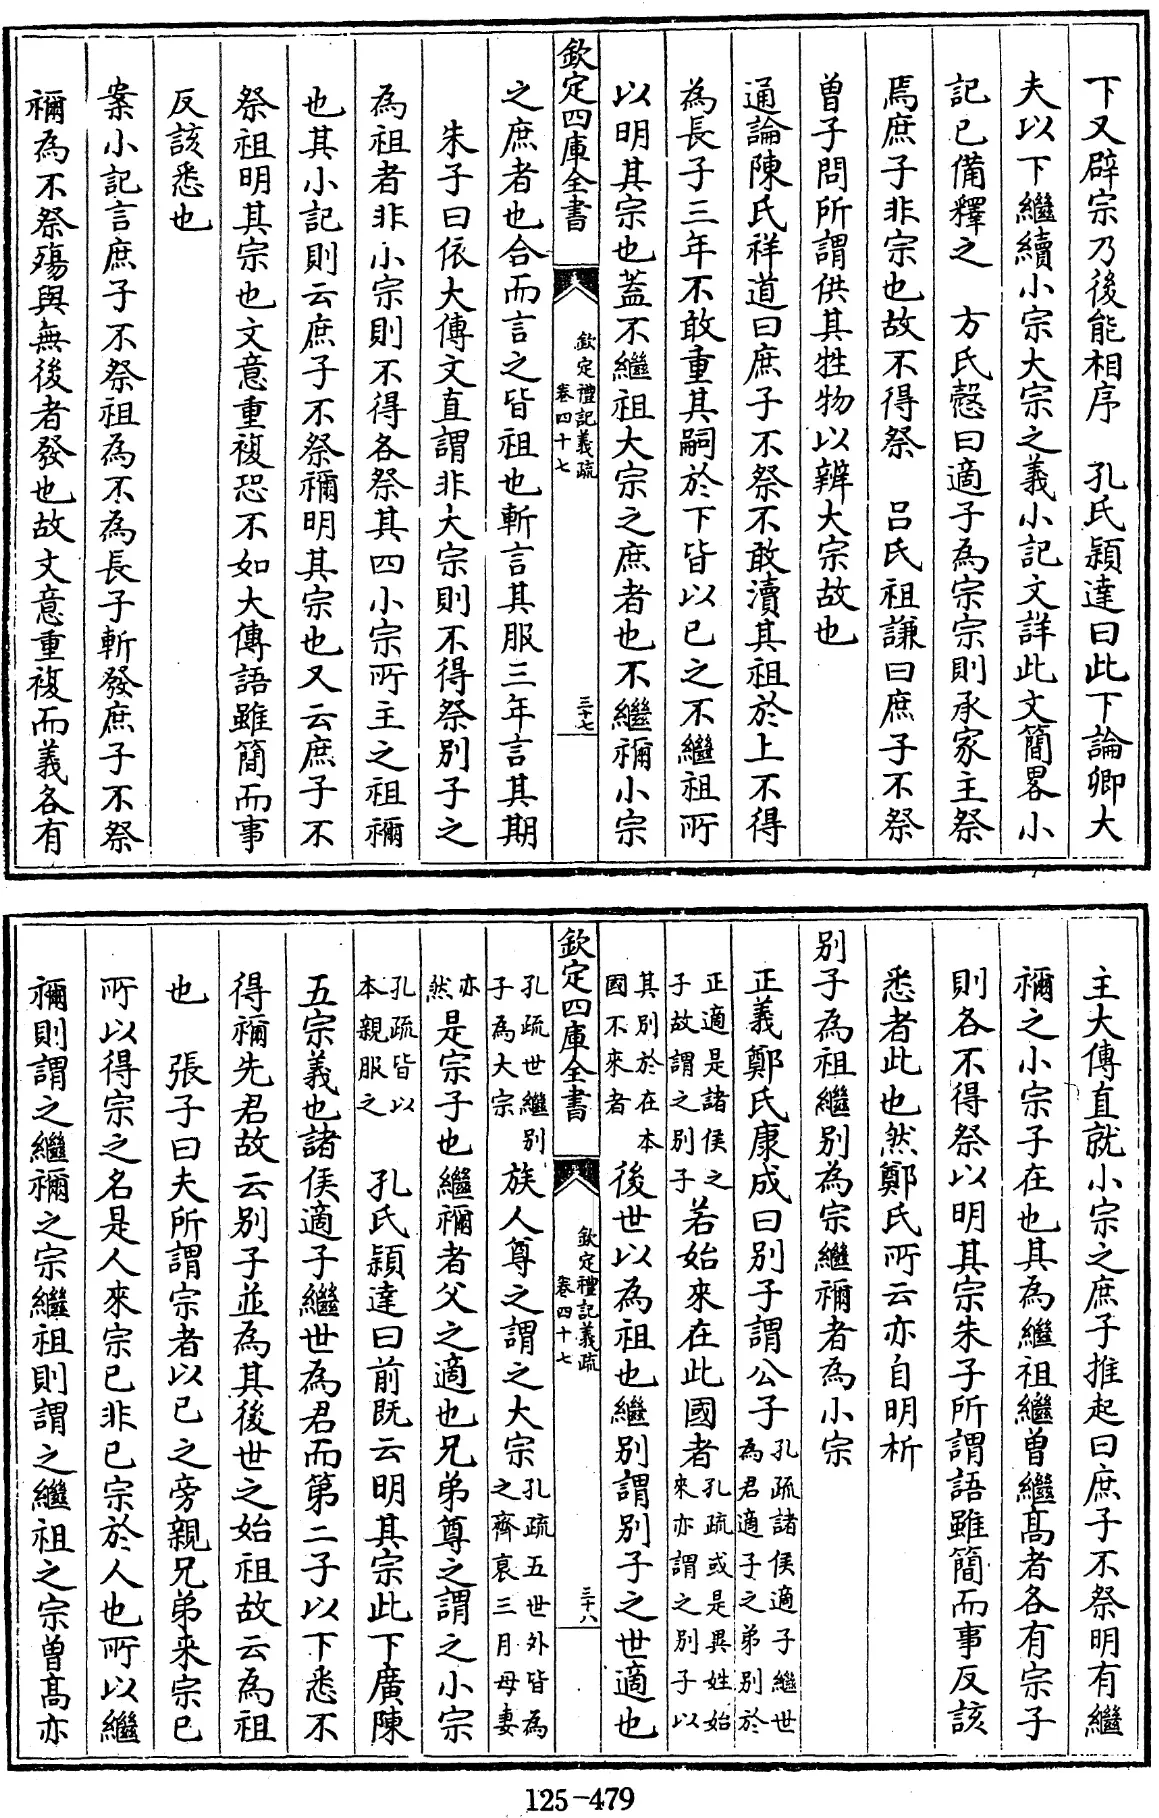 下又辟宗乃後能相序　孔氏穎達曰此下論卿大
夫以下繼續小宗大宗之義小記文詳此文簡畧小
記已備釋之　方氏慤曰適子為宗宗則承家主祭
焉庶子非宗也故不得祭　呂氏祖謙曰庶子不祭
曽子問所謂供其牲物以辨大宗故也
通論陳氏祥道曰庶子不祭不敢瀆其祖於上不得
為長子三年不敢重其嗣於下皆以已之不繼祖所
以明其宗也蓋不繼祖大宗之庶者也不繼禰小宗
欽定四庫全書
欽定禮記義疏
卷四十七
三十七
之庶者也合而言之皆祖也斬言其服三年言其期
朱子曰依大傳文直謂非大宗則不得祭別子之
為祖者非小宗則不得各祭其四小宗所主之祖禰
也其小記則云庶子不祭禰明其宗也又云庶子不
祭祖明其宗也文意重複恐不如大傳語雖簡而事
反該悉也
案小記言庶子不祭祖為不為長子斬發庶子不祭
禰為不祭殤與無後者發也故文意重複而義各有
主大傳直就小宗之庶子推起曰庶子不祭明有繼
禰之小宗子在也其為繼祖繼曽繼髙者各有宗子
則各不得祭以明其宗朱子所謂語雖簡而事反該
悉者此也然鄭氏所云亦自明析
別子為祖繼別為宗繼禰者為小宗
正義鄭氏康成曰別子謂公子孔疏諸侯適子繼世為君適子之弟別於
正適是諸侯之子故謂之別子若始來在此國者孔疏或是異姓始來亦謂之別子以
其別於在本國不來者後世以為祖也繼別謂別子之世適也
欽定四庫全書
欽定禮記義疏
卷四十七
三十八
孔疏世繼別子為大宗族人尊之謂之大宗孔疏五世外皆為之齊衰三月母妻
亦然是宗子也繼禰者父之適也兄弟尊之謂之小宗
孔疏皆以本親服之　孔氏穎達曰前既云明其宗此下廣陳
五宗義也諸侯適子繼世為君而第二子以下悉不
得禰先君故云別子並為其後世之始祖故云為祖
也　張子曰夫所謂宗者以已之旁親兄弟来宗已
所以得宗之名是人來宗已非已宗於人也所以繼
禰則謂之繼禰之宗繼祖則謂之繼祖之宗曽髙亦
125-479